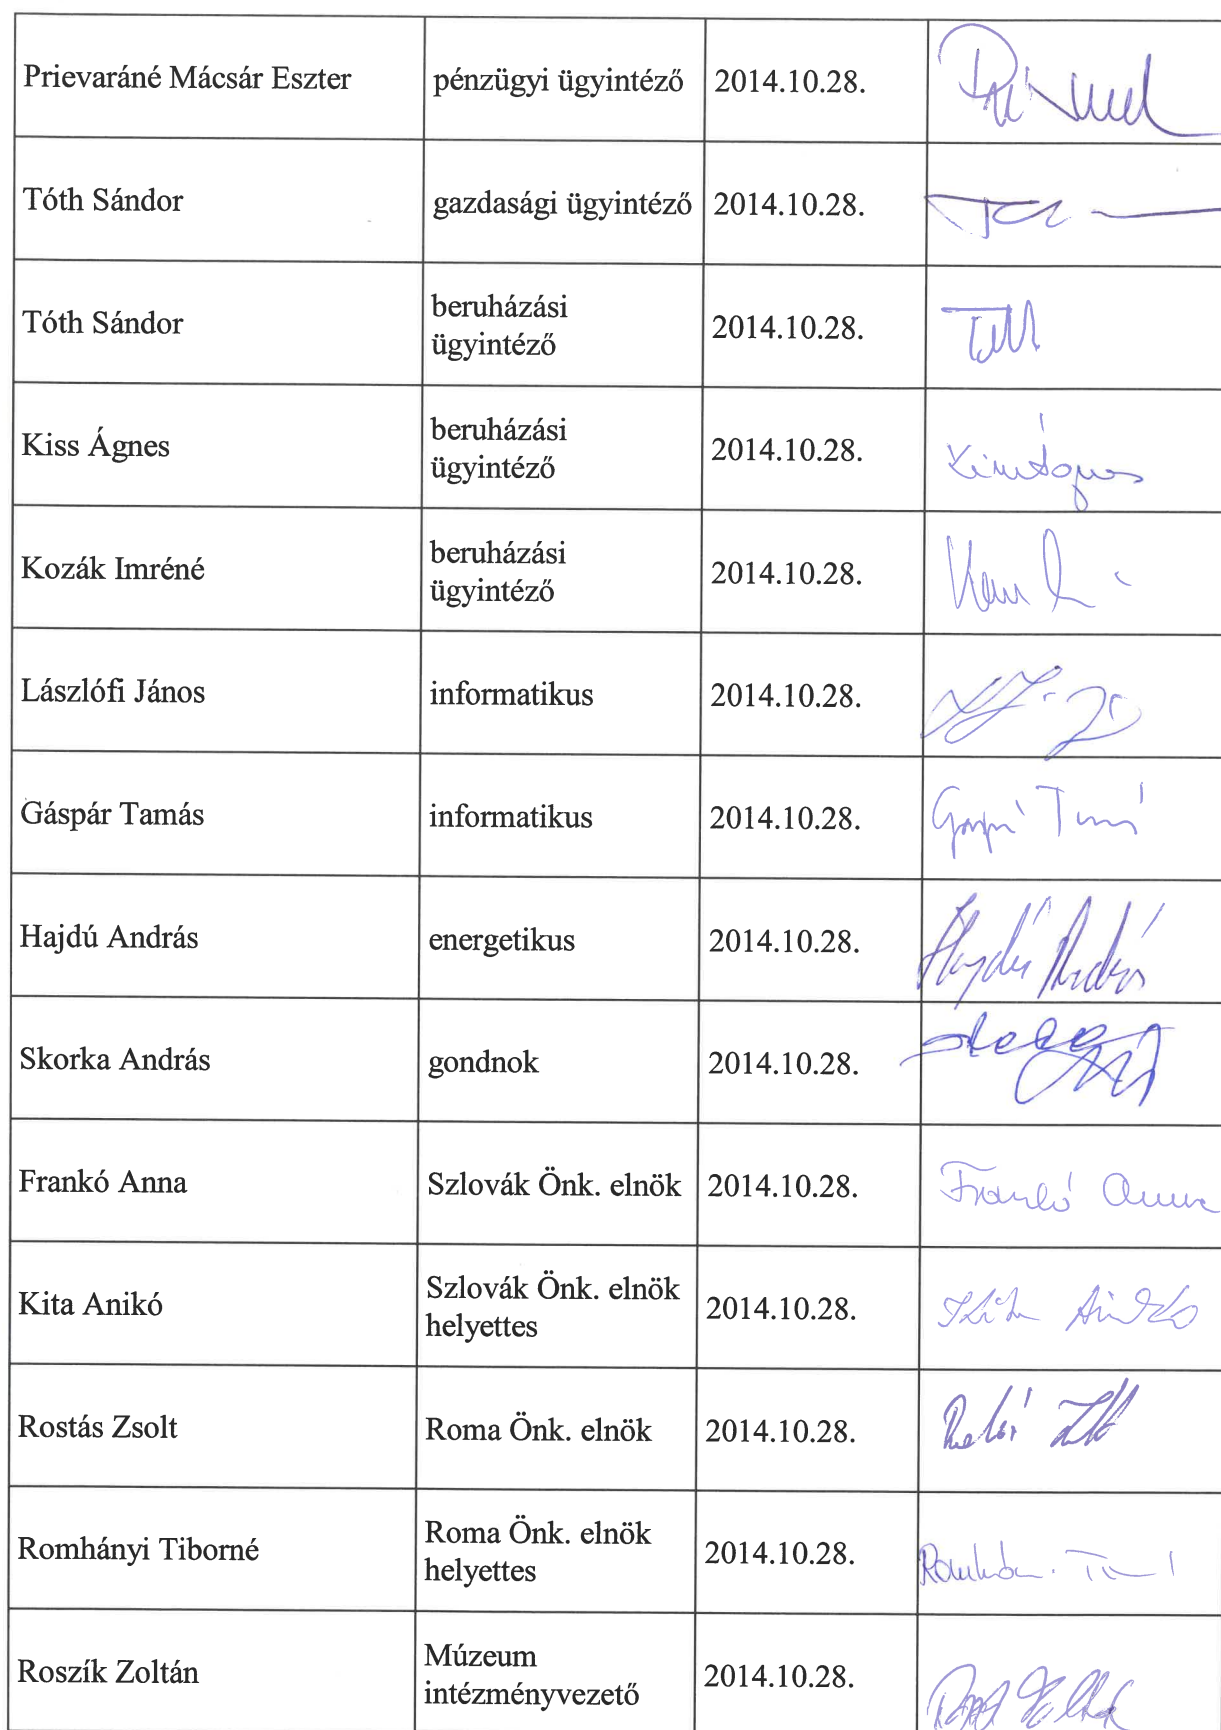 Prievaráné Mácsár Eszter pénzügyi ügyintéző 2014.10.28.
Tóth Sándor gazdasági ügyintéző 2014.10.28.
Tóth Sándor beruházási ügyintéző 2014.10.28.
Kiss Ágnes beruházási ügyintéző 2014.10.28. Kiss Ágnes
Kozák Imréné beruházási ügyintéző 2014.10.28.
Lászlófi János informatikus 2014.10.28.
Gáspár Tamás informatikus 2014.10.28. Gáspár Tamás
Hajdú András energetikus 2014.10.28. Hajdú András
Skorka András gondnok 2014.10.28.
Frankó Anna Szlovák Önk. elnök 2014.10.28. Frankó Anna
Kita Anikó Szlovák Önk. elnök helyettes 2014.10.28. Kita Anikó
Rostás Zsolt Roma Önk. elnök 2014.10.28.
Romhányi Tiborné Roma Önk. elnök helyettes 2014.10.28.
Roszík Zoltán Múzeum intézményvezető 2014.10.28.